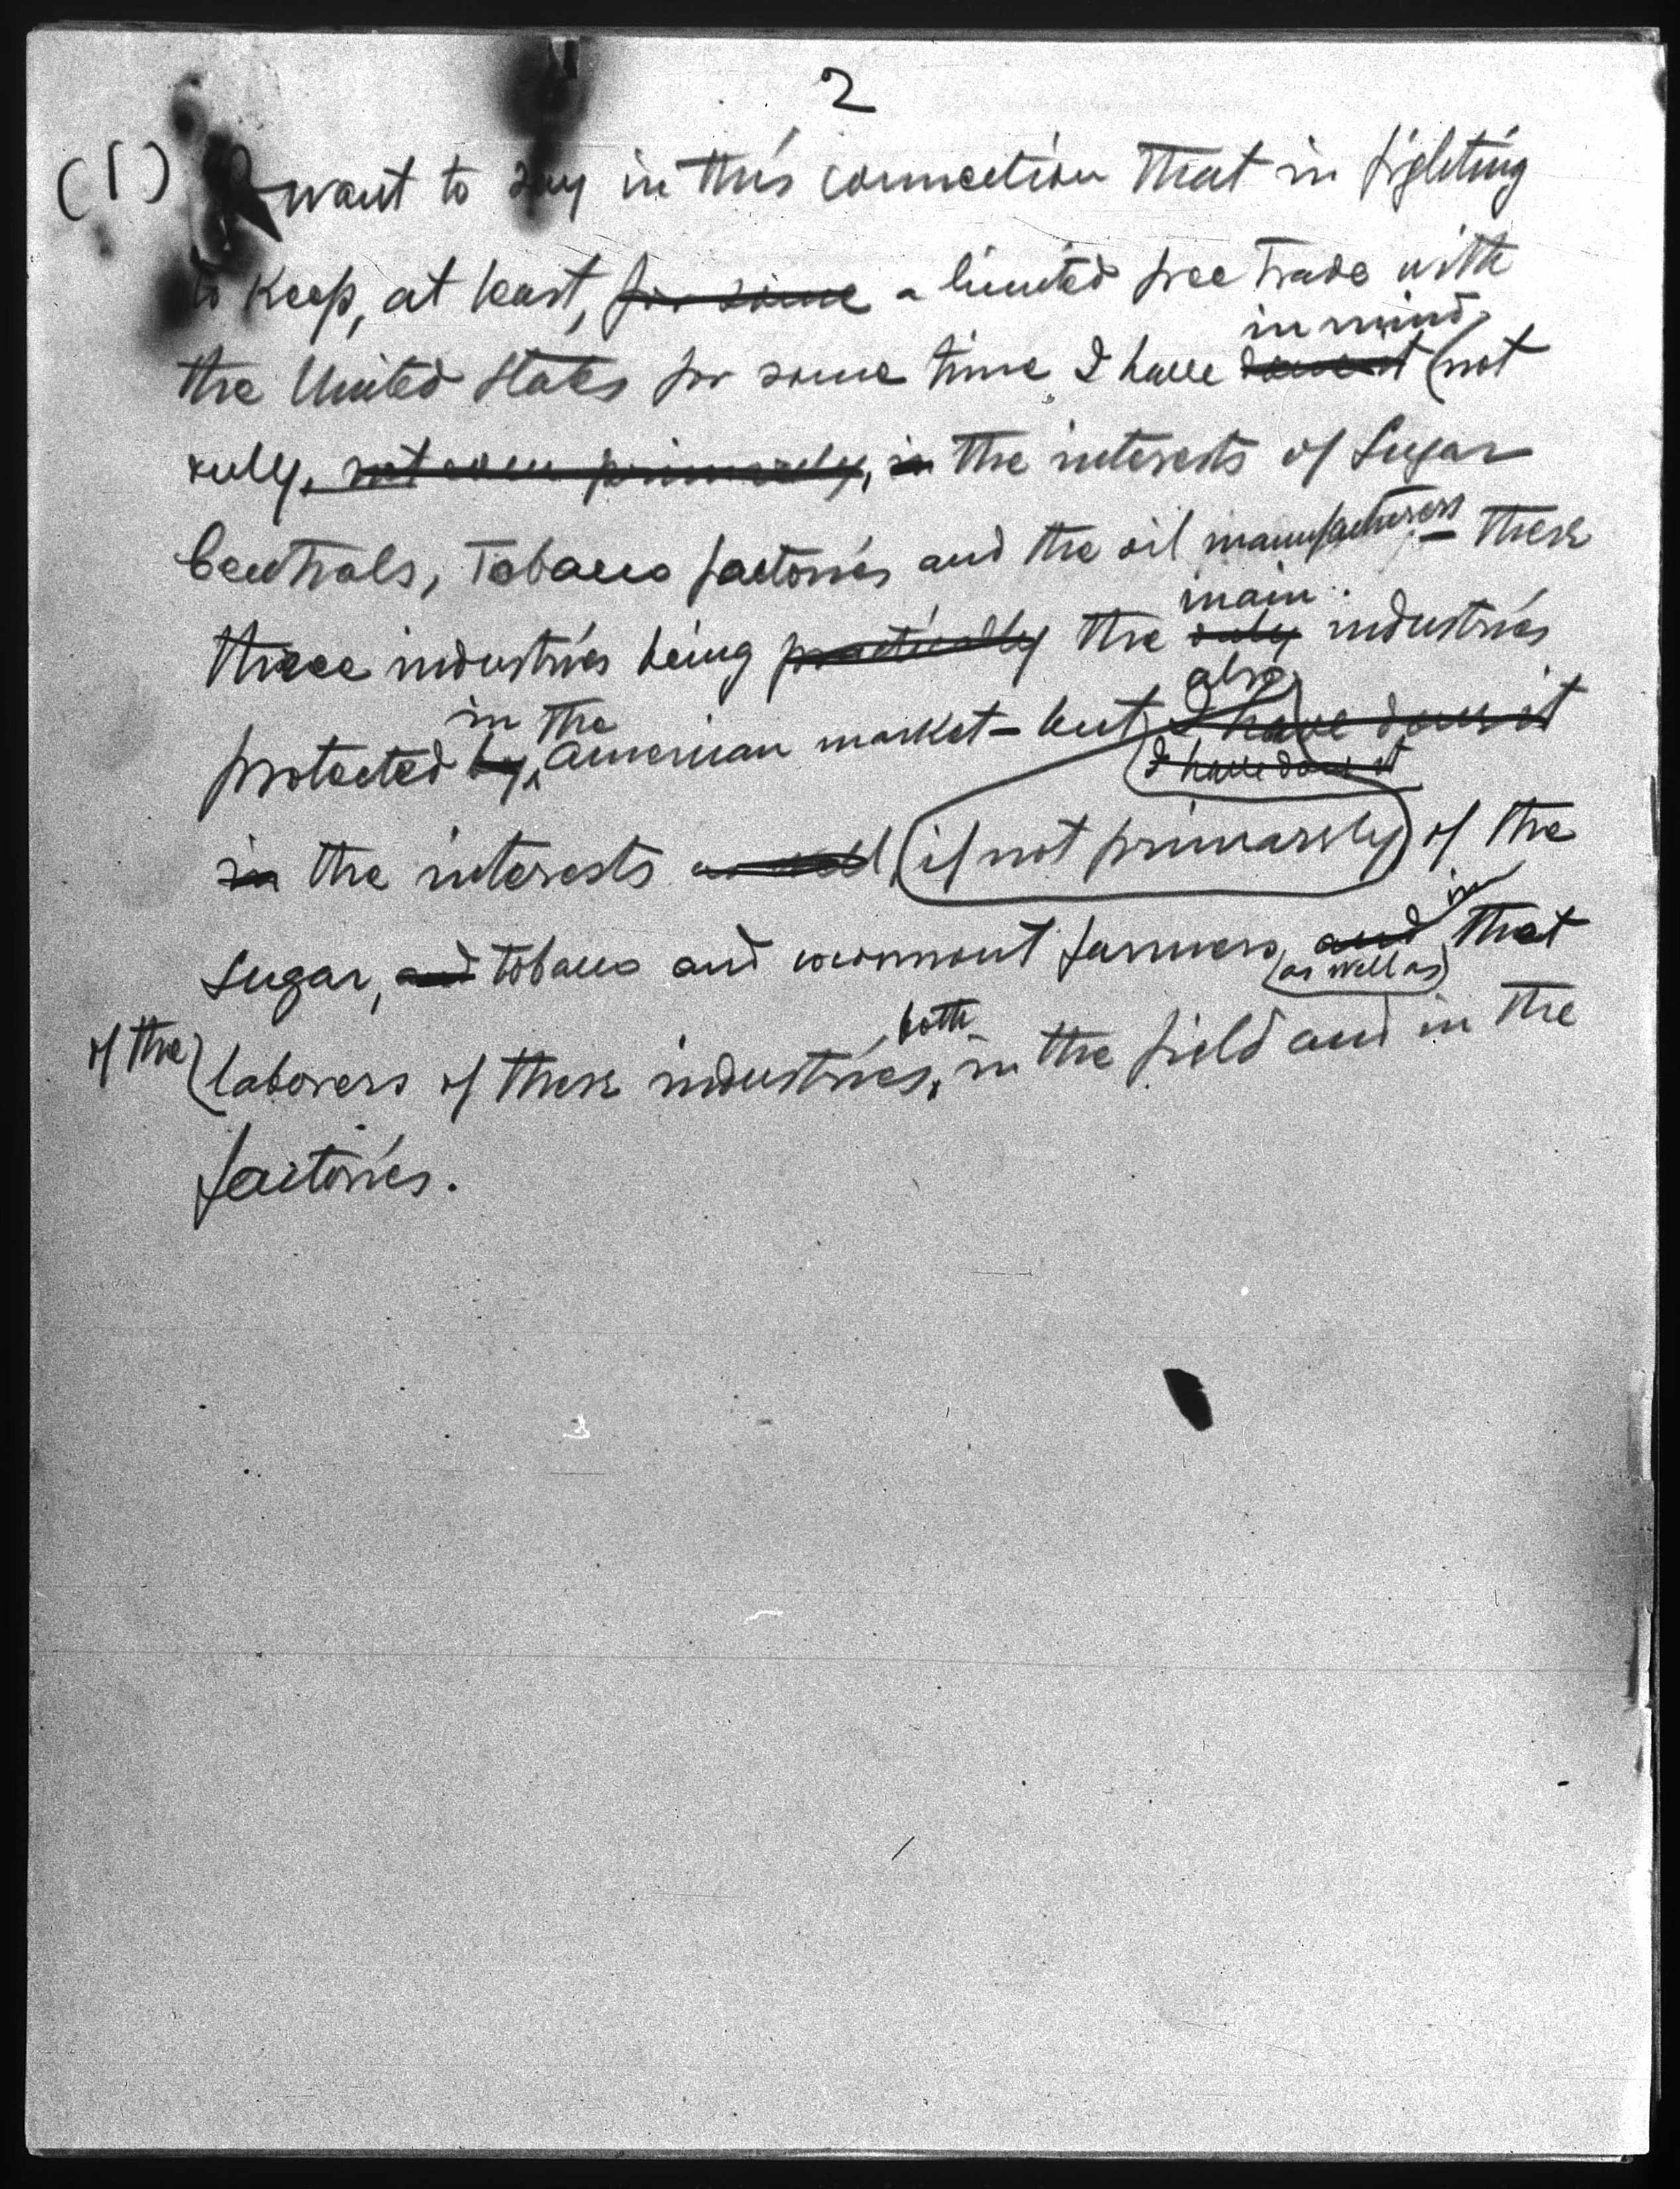 2
(1) I want to say in this connection that in fighting
to keep, at least, for some a limited free trade with
in mind,
the United States for some time I have done it (not
only, not even primarily, in the interests of Sugar
Centrals, Tobacco factories and the oil manufacturers - these
main
three industries being practically the only industries
also
in the
protected by American market - but I have done it
I have done it
in the interests as well (if not primarily) of the
in
sugar, and tobacco and coconut farmers, and that
(as well as)
both
of the (laborers of these industries, in the field and in the
factories.